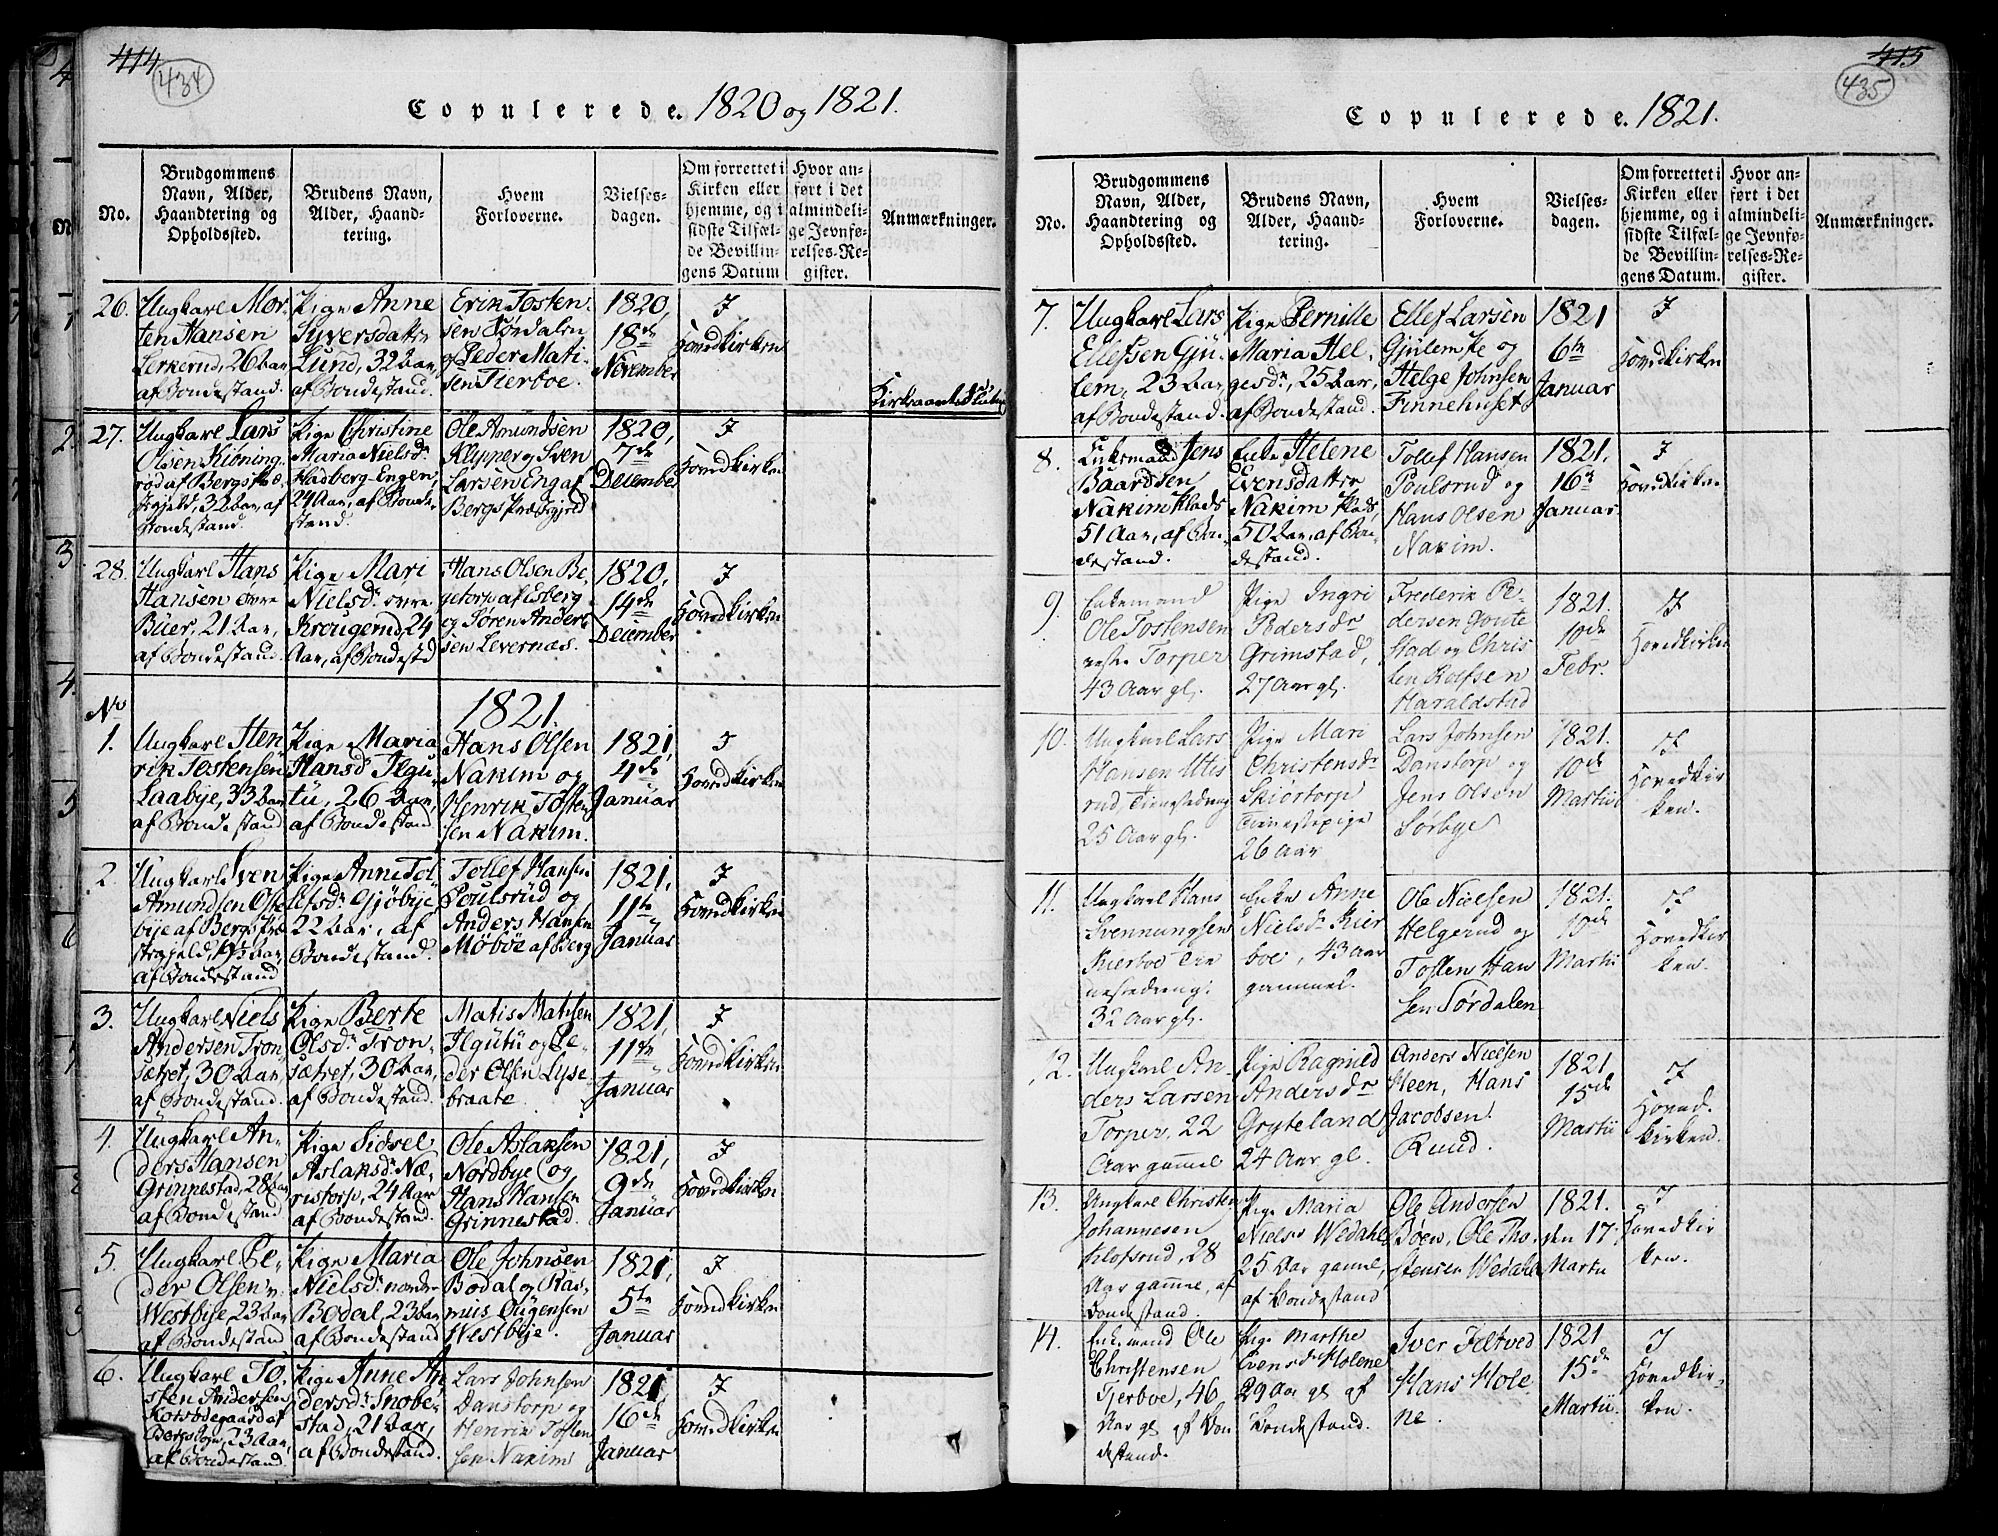 414
434
Copulerede. 1820 og 1821.
No.
Brudgommens
Navn, Alder,
Haandtering og
Opholdssted.
Brudens Navn,
Alder, Haand-
tering.
Hvem
Forloverne.
Vielses-
dagen.
Om forrettet i
Kirken eller
hjemme, og i
sidste Tilfæl-
de Bevillin-
gens Datum
Hvor an-
ført i det
almindeli-
ge Jevnfø-
relses-Re-
gister.
Anmærkninger.
26.
Ungkarl Mor-
ten Hansen
Lerkerud, 26 Aar,
af Bondestand.
Pige Anne
Syversdatter
Lund, 32 Aar,
af Bondestand.
Erik Tosten-
sen Sørdalen
og Peder Mati-
sen Tierboe.
1820,
18de
November
I
Hovedkirken
27.
Ungkarl Lars
Olsen Kioning-
rød af Bergs Præ-
stegield, 32 Aar, af
Bondestand.
Pige Christine
Maria Nielsdr
Hadberg-Engen,
24 Aar, af Bonde-
stand.
Ole Amundsen
Klypper og Sven
Larsen Eng af
Bergs Præstegjeld
1820,
7de
December
I
Hovedkirken
28.
Ungkarl Hans
Hansen øvre
Buer, 21 Aar,
af Bondestand.
Pige Mari
Nielsdr øvre
Krougerud, 24
Aar, af Bondestd
Hans Olsen Be-
getorp af Idsberg
og Søren Ander-
sen Levernæs.
1820,
14de
December
I
Hovedkirken
No
1821.
1.
Ungkarl Hen
rik Tostensen
Laabye, 33 Aar
af Bondestand
Pige Maria
Hansdr Ilgu-
tu, 26 Aar,
af Bondestand
Hans Olsen
Nakim og
Henrik Tosten
sen Nakim.
1821,
4de
Januar
I
Hovedkirken
2.
Ungkarl Sven
Amundsen Ose
bye af Bergs Præ
stegjeld, Aar,
af Bondestand
Pige Anne Tol
lefsdr Gjøbye,
22 Aar, af
Bondestand.
Tollef Hansen
Poulsrud og
Anders Hansen
Møboe af Berg
1821,
11te
Januar
I
Hovedkirken
3.
Ungkarl Niels
Andersen Tron-
sætret, 30 Aar,
af Bondestand.
Pige Berte
Olsdr Tron-
sætret, 30 Aar,
af Bondestand.
Matis Matisen
Ilgutu og Pe-
der Olsen Lyse
braate.
1821,
11te
Januar
I
Hovedkirken
4.
Ungkarl An-
ders Hansen
Grinnestad, 28 Aar
af Bondestand
Pige Sidsel
Aslaksdr Næ-
ristorp, 24 Aar
af Bondestand.
Ole Aslaksen
Nordbye og
Hans Hansen
Grinnestad.
1821,
9de
Januar
I
Hovedkirken
5.
Ungkarl Pe-
der Olsen n.
Westbye, 23 Aar,
af Bondestand
Pige Maria
Nielsdr nordre
Bodal, 23 Aar
af Bondestand
Ole Johnsen
Bodal og Ras-
mus Ougensen
Westbye.
1821,
5te
Januar
I
Hovedkirken
6.
Ungkarl To-
sten Andersen
af
Bergs Sogn, 23 Aar,
af Bondestand.
Pige Anne An
dersdr Snobe-
stad, 21 Aar,
af Bondestand.
Lars Johnsen
Danstorp og
Henrik Tosten
sen Nakims
1821,
16de
Januar
I
Hovedkirken
415
435
Copulerede. 1821.
No.
Brudgommens
Navn, Alder,
Haandtering og
Opholdssted.
Brudens Navn,
Alder, Haand-
tering.
Hvem
Forloverne.
Vielses-
dagen.
Om forrettet i
Kirken eller
hjemme, og i
sidste Tilfæl-
de Bevillin-
gens Datum.
Hvor an-
ført i det
almindeli-
ge Jevnfø-
relses-Re-
gister.
Anmærkninger.
7.
Ungkarl Lars
Ellefsen Gju-
lem, 23 Aar,
af Bondestand.
Pige Pernille
Maria Hel-
gesdr, 25 Aar,
af Bondestand.
Ellef Larsen
Gjulem og
Helge Johnsen
Finnehuset
1821
6te
Januar
I
Hovedkirken
8.
Enkemand Jens
Baardsen
Nakim Plads
51 Aar, af Bon-
destand.
Enke Helene
Evensdatter
Nakim Plads,
50 Aar, af Bon-
destand.
Tollef Hansen
Poulsrud og
Hans Olsen
Nakim.
1821.
16de
Januar
I
Hovedkirken
9.
Enkemand
Ole Tostensen
Torper
43 Aar gl.
Pige Ingri
Pedersdr
Grimstad,
27 Aar gl.
Frederik Pe-
dersen Goute
Stad og Chris
ten Rolfsen
Haraldstad
1821.
10de
Febr.
I
Hovedkirken
10.
Ungkarl Lars
Hansen Utis
rud Tienestedreng
25 Aar gl.
Pige Mari
Christensdr
Skiørtorp
Tienestepige
26 Aar
Lars Johnsen
Danstorp og
Jens Olsen
Sørbye
1821.
10de
Martii
I
Hovedkir
ken.
11.
Ungkarl Hans
Svennungsen
Kierboe Tie
nestedreng.
32 Aar gl.
Enke Anne
Nielsdr Kier
boe, 43 Aar
gammel.
Ole Nielsen
Helgerud og
Tosten Han
sen Sørdalen
1821.
10de
Martii
I
Hovedkir
ken.
12.
Ungkarl An-
ders Larsen
Torper, 22
Aar gammel
Pige Ragnild
Andersdr
Gryteland
24 Aar gl.
Anders Nielsen
Heen, Hans
Jacobsen
Ruud.
1821
15de
Martii
I
Hoved-
kirken.
13.
Ungkarl Christen
Johannesen
Klofsrud, 28
Aar gamme, af
Bondestand.
Pige Maria
Nielsd Wedahl
25 Aar gamel,
af Bondestand
Ole Andersen
Bøen, Ole Tho-
stensen Wedahl
1821.
den 17
Martii
I
Hovedkir
ken.
14.
Enkemand Ole
Christensen
Tjerboe, 46
Aar gl af Bon
destand.
Pige Marthe
Evensdr Holene
29 Aar gl af
Bondestand.
Iver Feltved
Hans Hole
ne.
1821
15de
Martii
I
Hovedkir-
ken.